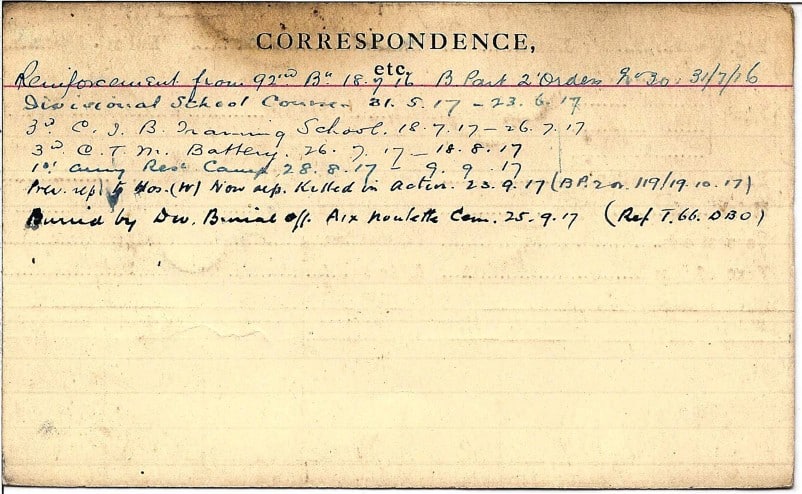 CORRESPONDENCE,
etc.
Reinforcement from 92nd Bn 18.7.16 B Part 2 Orders No 30: 31/7/16
Divisional School Course 31.5.17 - 23.6.17
3rd C.I.B. Training School. 18.7.17 - 26.7.17
3rd C.T.M. Battery. 26.7.17 - 18.8.17
1st Army Rest Camp 28.8.17 - 9.9.17
Prev. rep. to Hos. (W) Now rep. Killed in Action. 23.9.17 (B.P.2 or. 119/19.10.17)
Buried by Div. Burial Off. Aix Noulette Cem. 25.9.17 (Ref T.66. DBO)